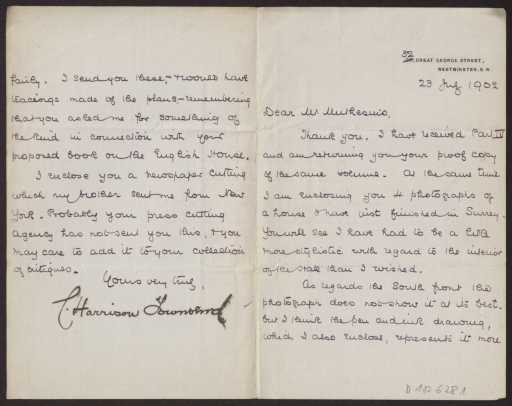 32, GREAT GEORGE STREET,
WESTMINSTER, S.W.
23 July 1902
Dear Mr Muthesius,
Thank you. I have received Part IV
and am returning you your proof copy
of the same volume. At the same time
I am enclosing you 4 photographs of
a house I have just finished in Surrey.
You will see I have had to be a little
more stylistic with regard to the interior
of the Hall than I wished.
As regards the South front the
photograph does not show it at its best.
but I think the pen and ink drawing,
which I also enclose, represents it more
fairly. I send you these, & would have
tracings made of the plans, remembering
that you asked me for something of
the kind in connection with your
proposed book on the English House.
I enclose you a newspaper cutting
which my brother sent me from New
York. Probably your press cutting
Agency has not sent you this, & you
may care to add it to your collection
of critiques.
Yours very truly,
C. Harrison Townsend
D 102 6281